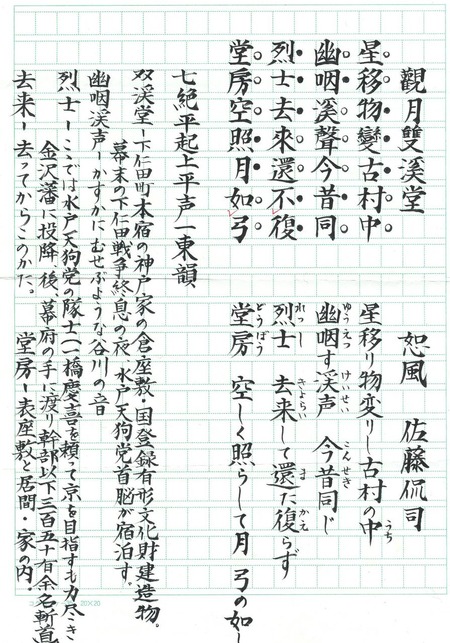 觀月雙溪堂
恕風　佐藤侃司
星移物變古村中
星移り物変りし古村の中うち
幽咽溪聲今昔同
幽咽ゆうえつす渓声けいせい　今昔こんせき同じ
烈士去來還不復
烈士れっし　去来きょらいして還まだ復かえらず
堂房空照月如弓
堂房どうぼう　空しく照らして月　弓の如し
七絶平起上平声一東韻
双渓堂ー下仁田町本宿の神戸家の倉座敷・国登録有形文化財建造物。
幕末の下仁田戦争終息の夜、水戸天狗党首脳が宿泊す。
幽咽渓声ーかすかにむせぶような谷川の音
烈士ーここでは水戸天狗党の隊士(一橋慶喜を頼って京を目指すも力尽き
金沢藩に投降後、幕府の手に渡り幹部以下三百五十有余名斬首
去来ー去ってからこのかた。　堂房ー表座敷と居間・家の内。
20×20